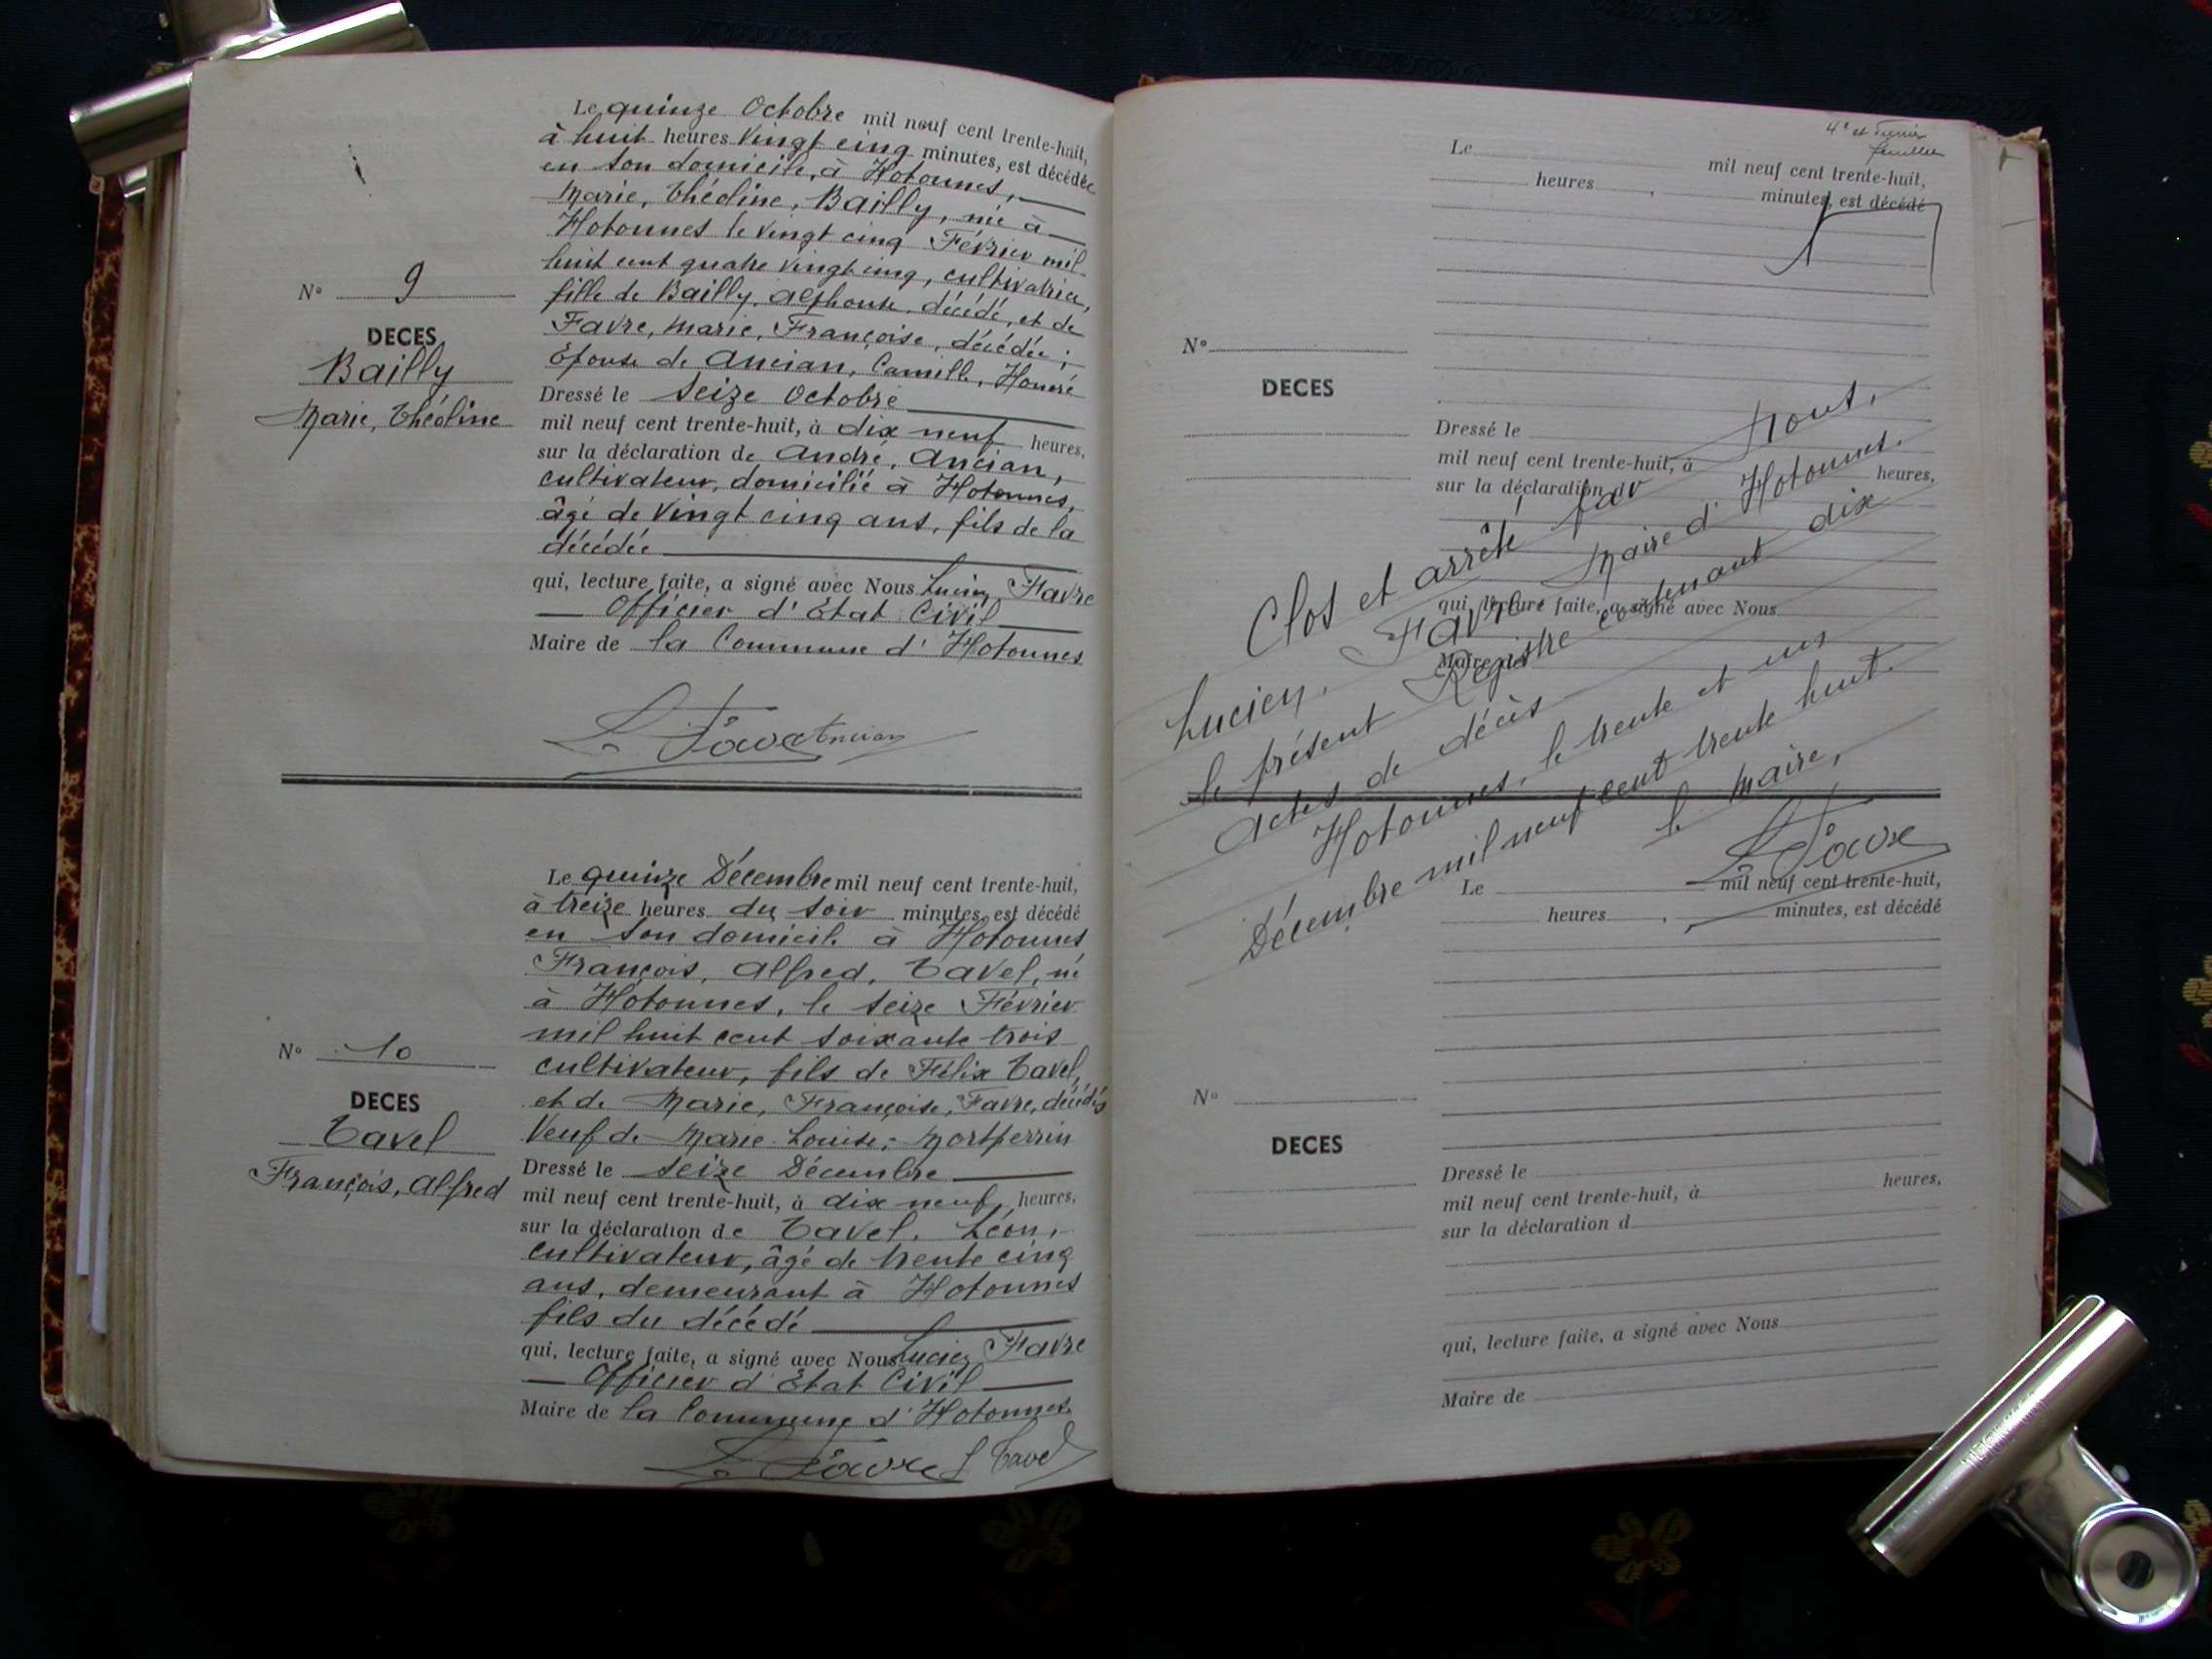 Le quinze Octobre mil neuf cent trente-huit,
à huit heures vingt cinq minutes, est décédée
en son domicile, à Hotonnes,
Marie, Théoline, Bailly, née à
Hotonnes le vingt cinq Février mil
huit cent quatre vingt cinq, cultivatrice,
fille de Bailly, Alphonse, décédé, et de
Favre, Marie, Françoise, décédée ;
Epouse de Ancian, Camille, Honoré
N° 9
DECES
Bailly
Marie, Théoline
Dressé le seize Octobre
mil neuf cent trente-huit, à dix neuf heures,
sur la déclaration de André, Ancian,
cultivateur, domicilié à Hotonnes,
âgé de vingt cinq ans, fils de la
décédée
qui, lecture faite, a signé avec Nous Lucien Favre
Officier d'Etat Civil
Maire de la Commune d'Hotonnes
L. Favre Ancian
Le quinze Décembre mil neuf cent trente-huit,
à treize heures du soir minutes, est décédé
en son domicile à Hotonnes
François, Alfred, Tavel, né
à Hotonnes, le seize Février
mil huit cent soixante trois
cultivateur, fils de Félix Tavel,
et de Marie, Françoise, Favre, décédés
Veuf de Marie-Louise, Montperrin
N° 10
DECES
Tavel
François, Alfred
Dressé le seize Décembre
mil neuf cent trente-huit, à dix neuf heures,
sur la déclaration de Tavel, Léon,
cultivateur, âgé de trente cinq
ans, demeurant à Hotonnes
fils du décédé
qui, lecture faite, a signé avec Nous Lucien Favre
Officier d'Etat Civil
Maire de la Commune d'Hotonnes
L. Favre L Tavel
4e et dernier
feuillet
Le mil neuf cent trente-huit,
heures, minutes, est décédé
N°
DECES
Dressé le
mil neuf cent trente-huit, à heures,
sur la déclaration d
qui, lecture faite, a signé avec Nous
Maire de
Clos et arrêté par Nous,
Lucien, Favre Maire d'Hotonnes.
le présent Registre contenant dix
Actes de décès
Hotonnes, le trente et un
Décembre mil neuf cent trente huit.
le Maire,
L. Favre
Le mil neuf cent trente-huit,
heures, minutes, est décédé
N°
DECES
Dressé le
mil neuf cent trente-huit, à heures,
sur la déclaration d
qui, lecture faite, a signé avec Nous
Maire de